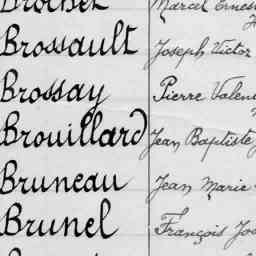 Brochet Marcel Ernes
Brossault Joseph Victor
Brossay Pierre Valen
Brouillard Jean Baptiste
Bruneau Jean Marie
Brunel François Jo